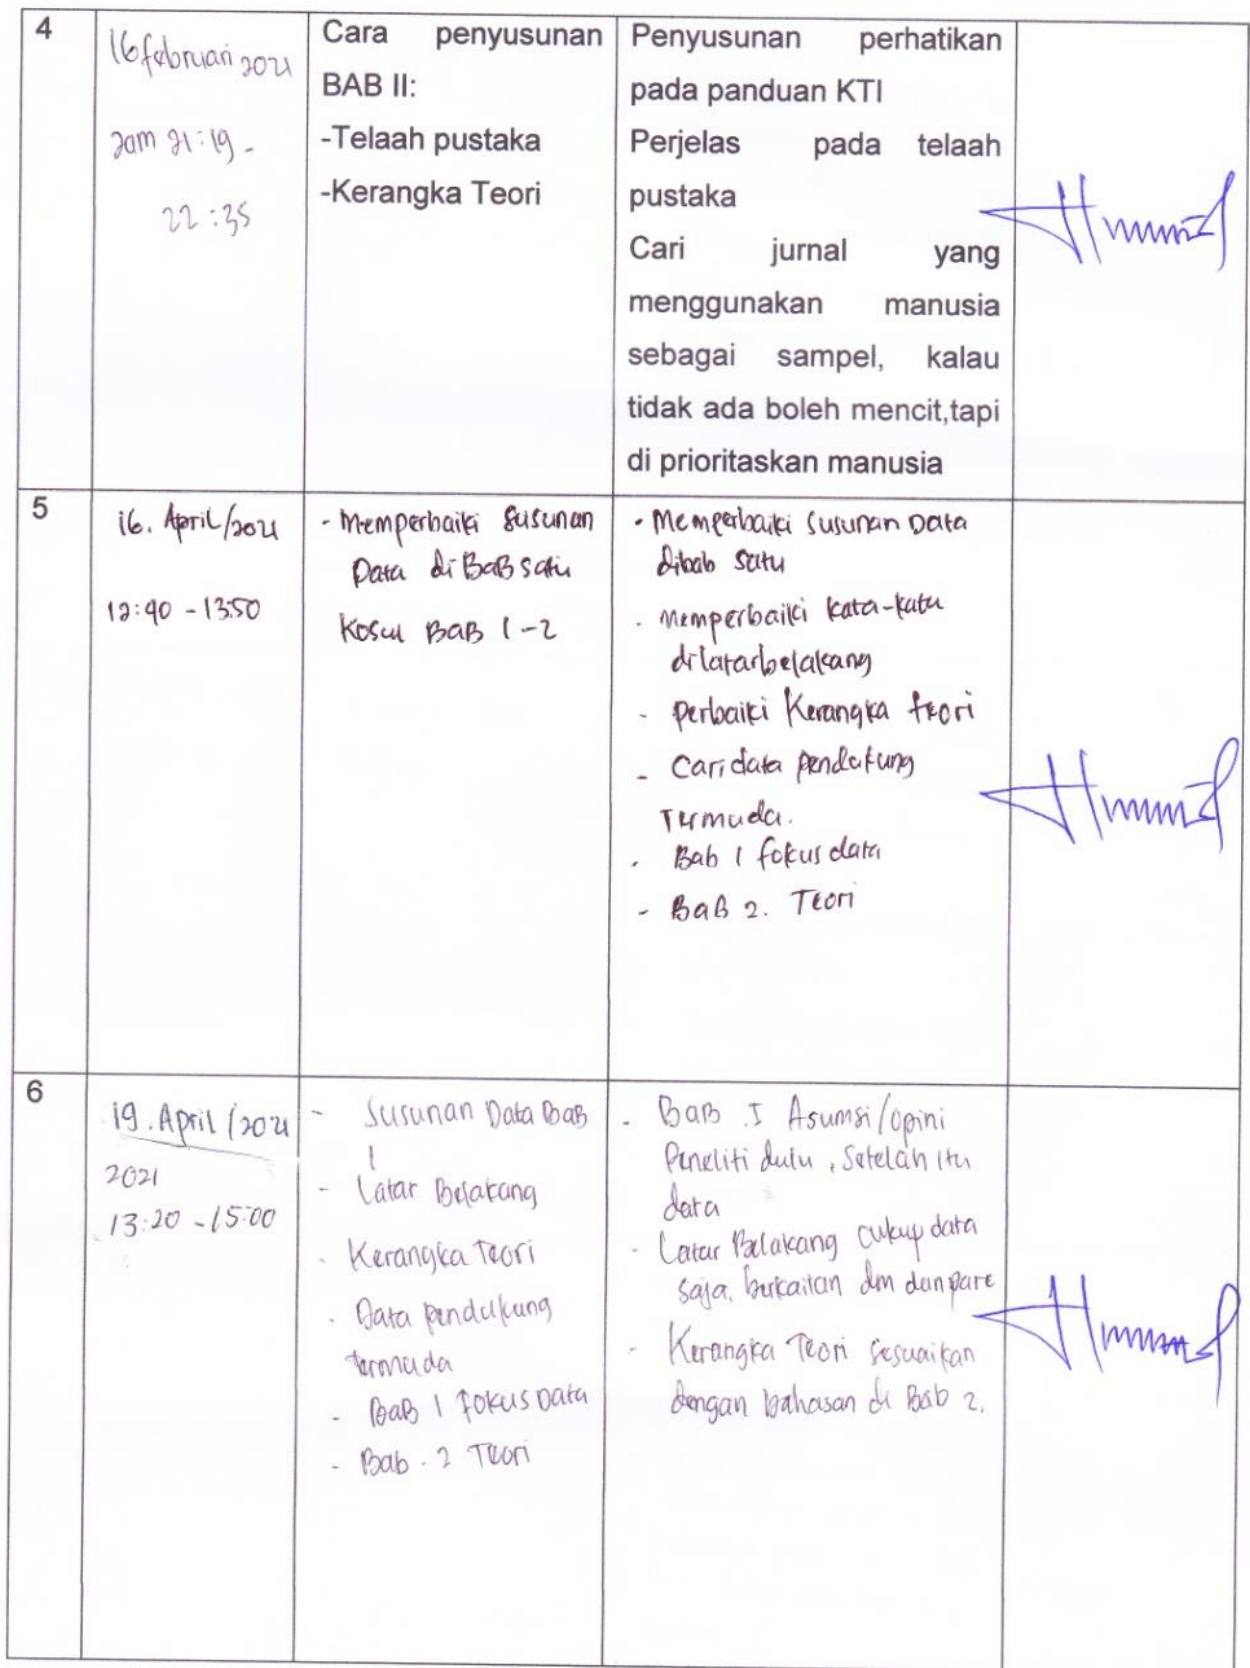 4
16 februari 2021
Jam 21:19 -
22:35
Cara penyusunan
BAB II:
-Telaah pustaka
-Kerangka Teori
Penyusunan perhatikan
pada panduan KTI
Perjelas pada telaah
pustaka
Cari jurnal yang
menggunakan manusia
sebagai sampel, kalau
tidak ada boleh mencit,tapi
di prioritaskan manusia
5
16. April/2021
12:40 - 13:50
- Memperbaiki susunan
Data di BaB satu
Kosul BAB 1-2
- Memperbaiki susunan Data
dibab satu
- Memperbaiki kata-kata
dilatarbelakang
- Perbaiki Kerangka teori
- Cari data pendukung
Termuda.
- Bab 1 fokus data
- BaB 2. Teori
6
19. April/2021
2021
13:20 - 15:00
- Susunan Data BaB
1
- Latar Belakang
- Kerangka Teori
- Data pendukung
termuda
- BaB 1 Fokus Data
- Bab. 2 Teori
- BaB. I Asumsi/opini
Peneliti dulu, Setelah itu
data
- Latar Belakang cukup data
saja, berkaitan dm dan pare
- Kerangka Teori sesuaikan
dengan bahasan di Bab 2.